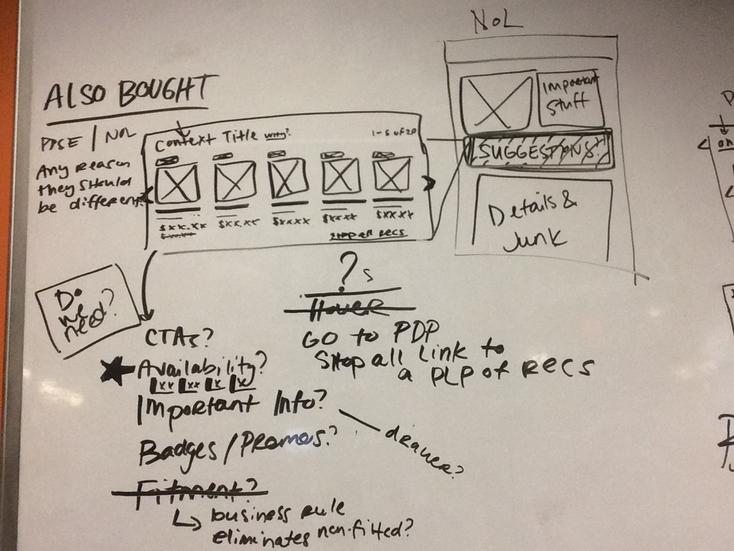 ALSO BOUGHT
PDSE / NOL
Any reason
they should
be different?
Context Title why?
1-5 of 20
$xx.xx $xx.xx $xx.xx $xx.xx $xx.xx
$xx.xx
Shop all RECS
NOL
Important
Stuff
SUGGESTIONS!
Details &
Junk
Do
we
need?
CTAs?
Availability?
Important Info?
drawer?
Badges/Promos?
Fitment?
business rule
eliminates non-fitted?
?s
Hover
Go to PDP
Shop all link to
a PLP of RECS